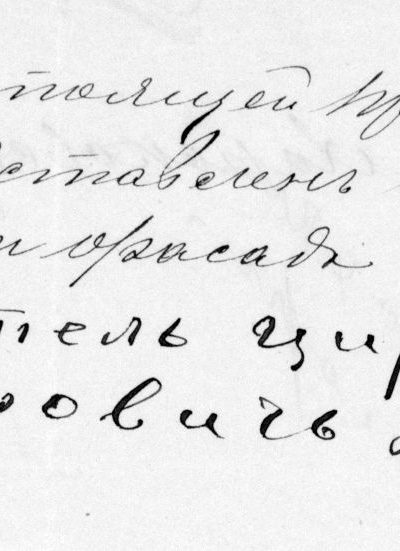 тоящей пр
ставленъ
и фасадъ
тель Цир
ровичъ